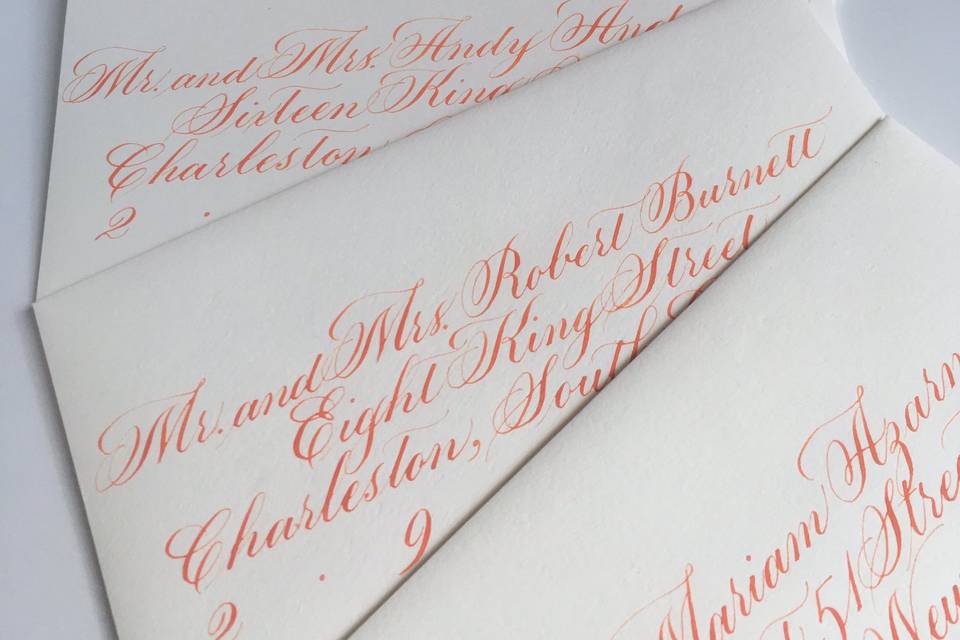 Mr. and Mrs. Andy And
Sixteen King
Charleston
2 .
Mr. and Mrs. Robert Burnett
Eight King Street
Charleston, South
2 . 9
Mariam Azarn
51 Stre
New